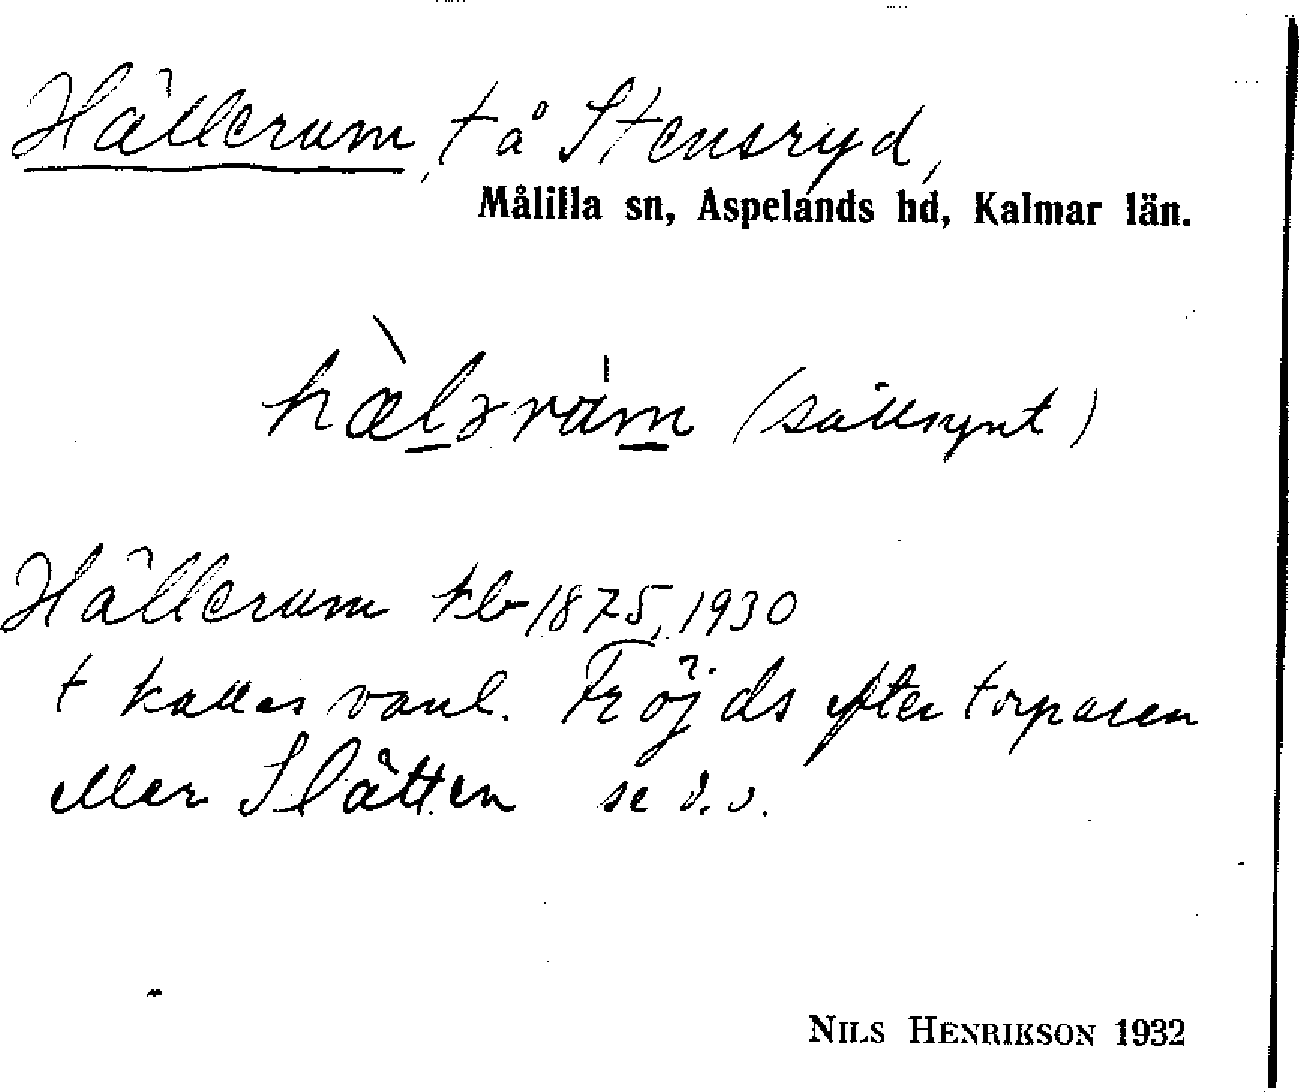 Hällerum, t å Stensryd,
Målilla sn, Aspelands hd, Kalmar län.
hæ̀lɜrùm (sällsynt)
Hällerum kb 1875, 1930
t kallas vanl. Fröjds efter torparen
eller Slätten se d. o.
NILS HENRIKSON 1932